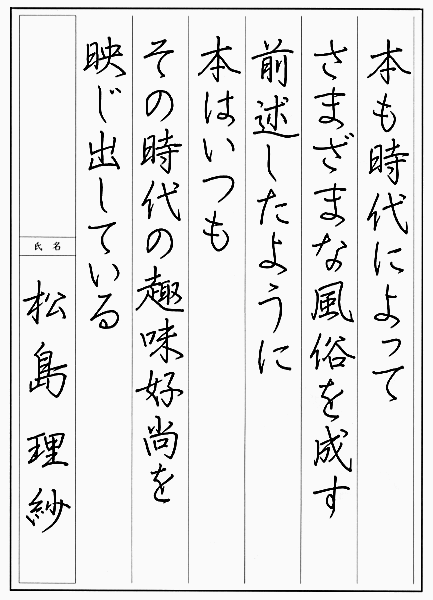 本も時代によって
さまざまな風俗を成す
前述したように
本はいつも
その時代の趣味好尚を
映じ出している
氏名
松島理紗